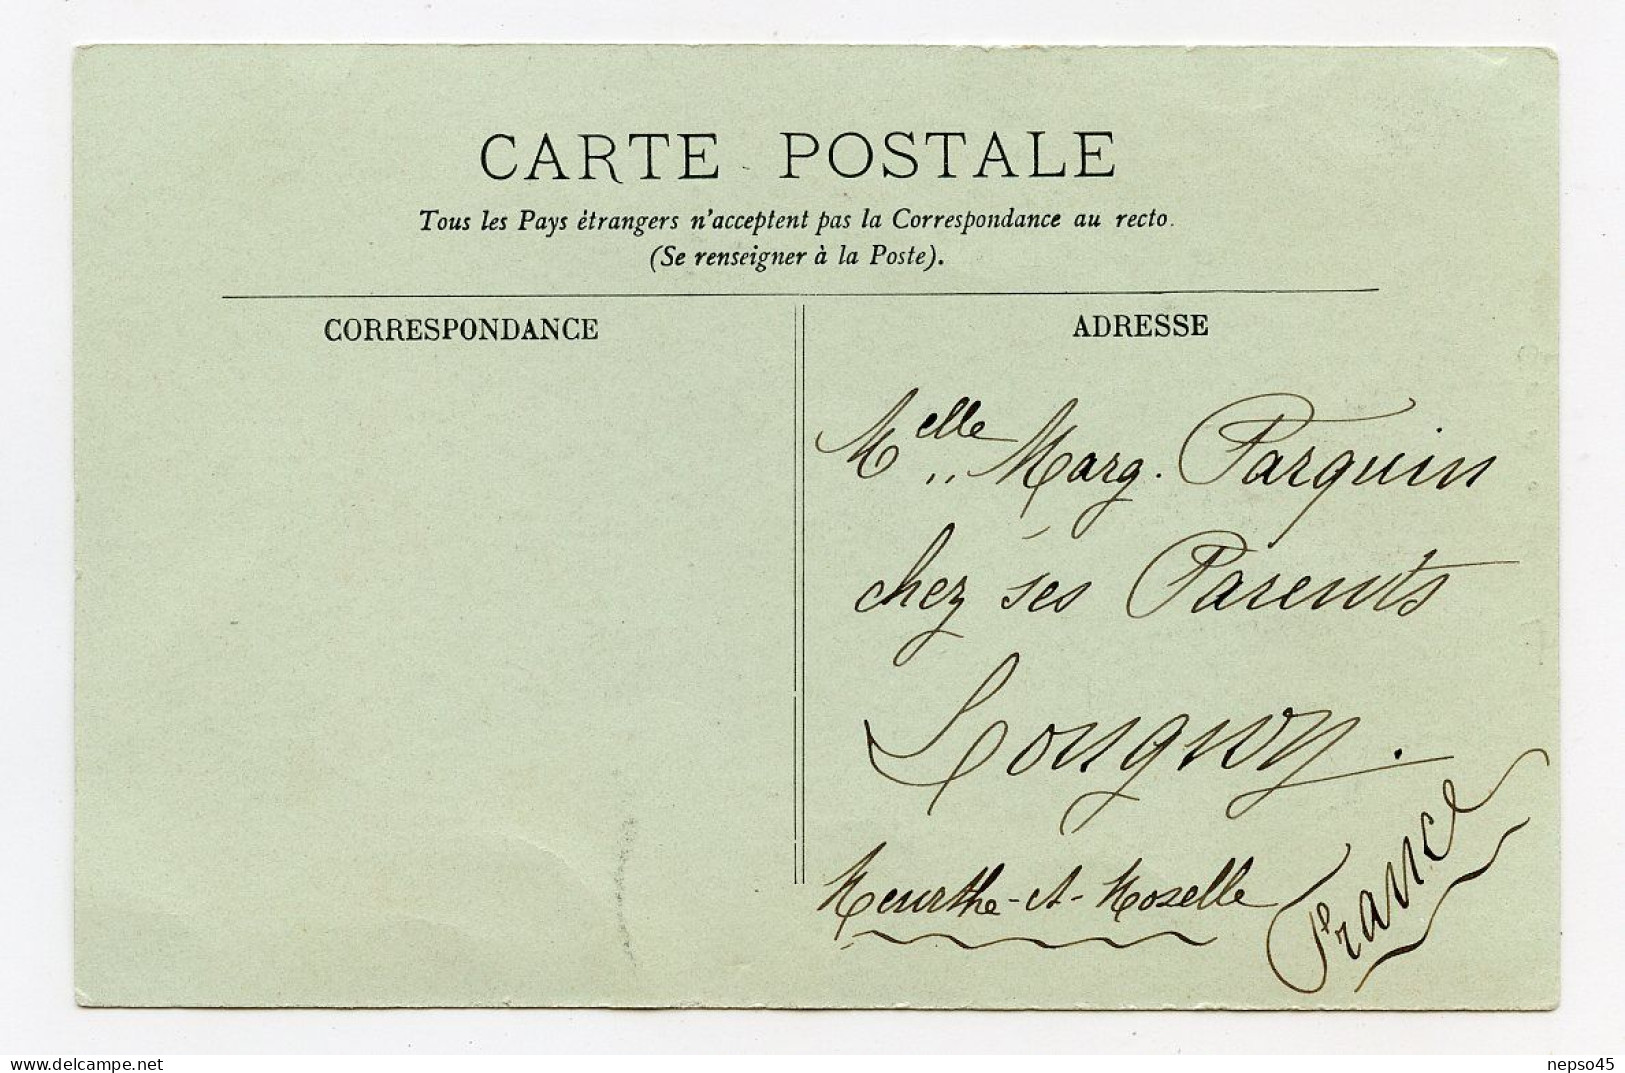 CARTE POSTALE
Tous les Pays étrangers n'acceptent pas la Correspondance au recto.
(Se renseigner à la Poste).
CORRESPONDANCE
ADRESSE
Melle Marg. Parquin
chez ses Parents
Longwy.
Meurthe-et-Moselle
France
www.delcampe.net
nepso45